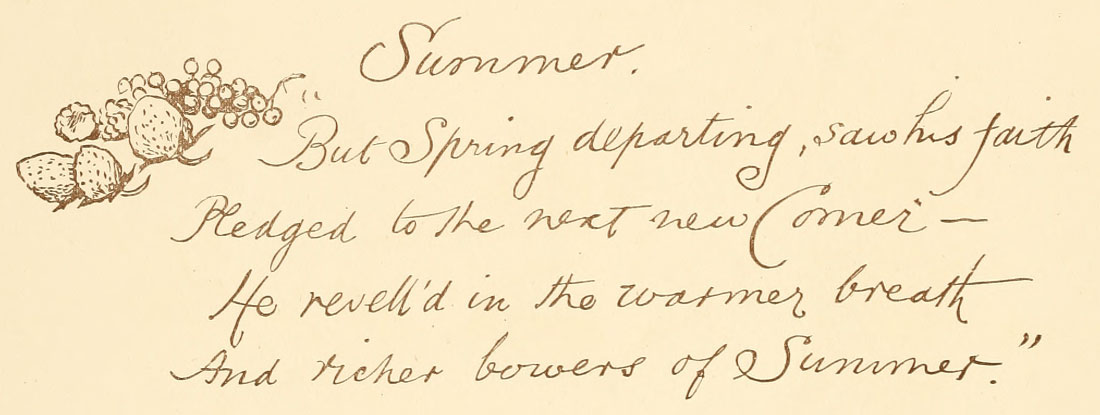 Summer.
"But Spring departing, saw his faith
Pledged to the next new Comer —
He revell'd in the warmer breath
And richer bowers of Summer."